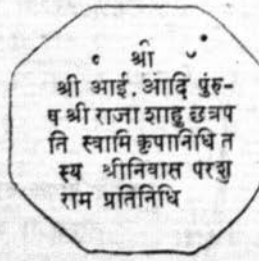 श्री
श्री आई.आदि पुंरु-
ष श्री राजा शाहू छत्रप
नि स्वामि कृपानिधि त
स्य श्रीनिवास परशु
राम प्रतिनिधि